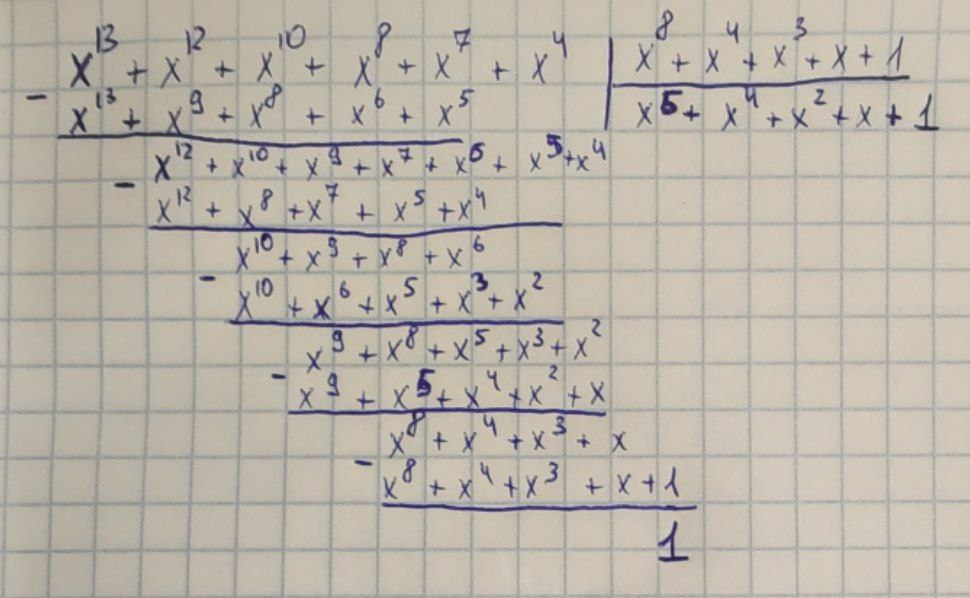 x¹³ + x¹² + x¹⁰ + x⁸ + x⁷ + x⁴ | x⁸ + x⁴ + x³ + x + 1
- x¹³ + x⁹ + x⁸ + x⁶ + x⁵ | x⁵ + x⁴ + x² + x + 1
x¹² + x¹⁰ + x⁹ + x⁷ + x⁶ + x⁵ + x⁴
- x¹² + x⁸ + x⁷ + x⁵ + x⁴
x¹⁰ + x⁹ + x⁸ + x⁶
- x¹⁰ + x⁶ + x⁵ + x³ + x²
x⁹ + x⁸ + x⁵ + x³ + x²
- x⁹ + x⁵ + x⁴ + x² + x
x⁸ + x⁴ + x³ + x
- x⁸ + x⁴ + x³ + x + 1
1